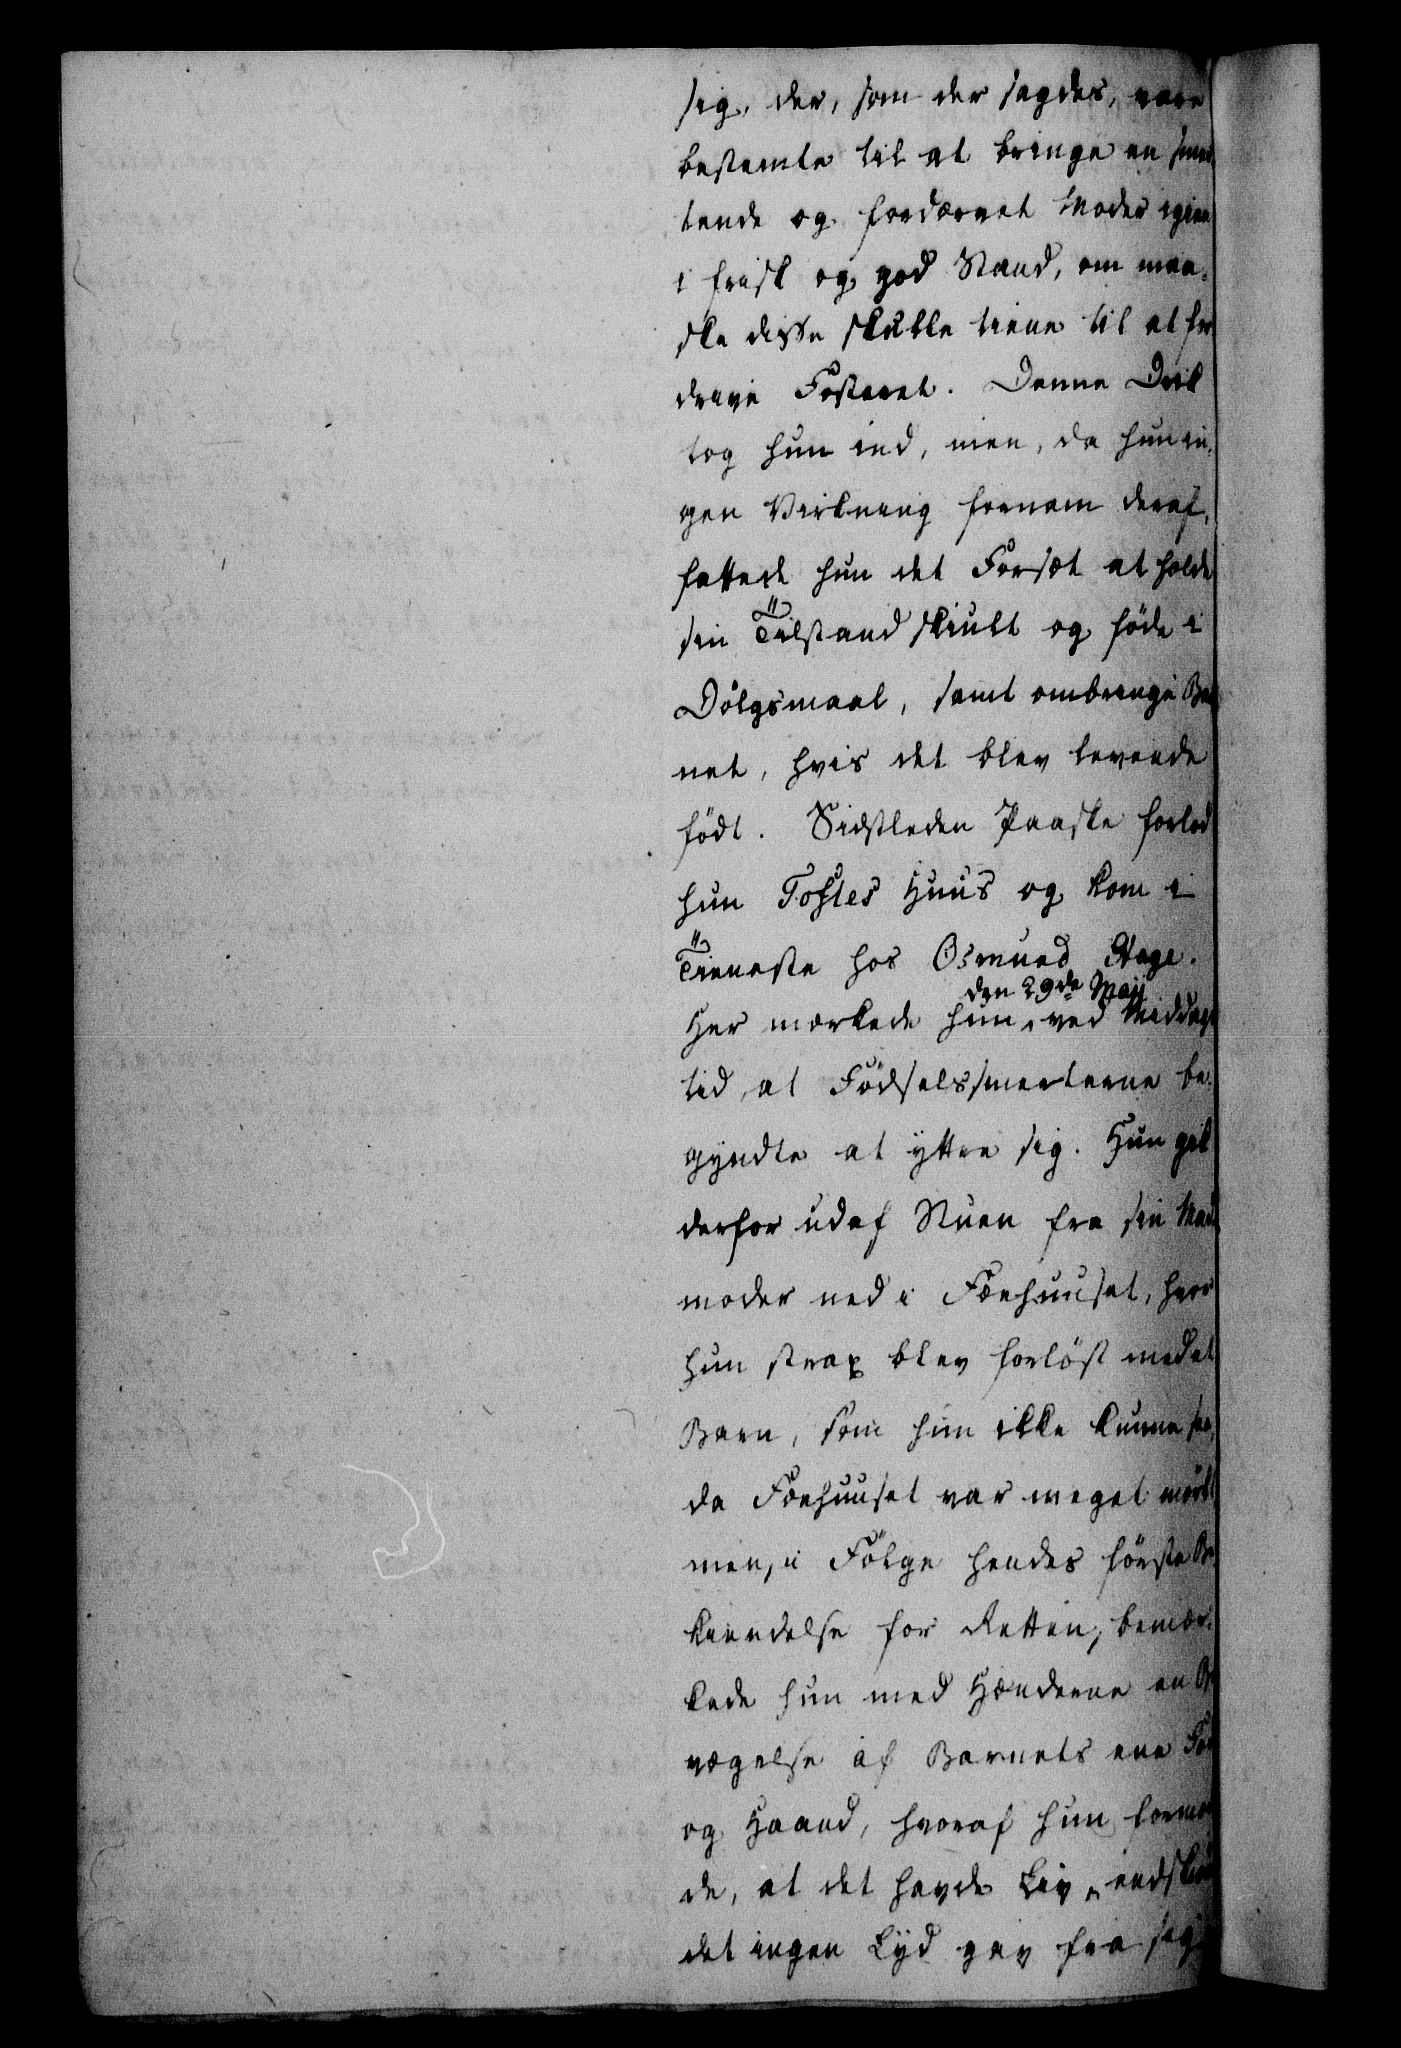 sig, der, som der sagdes, vare
bestemte til at bringe en smed
tende og fordærvet Moder igien
i frisk og god Stand, om maa-
ske disse skulle tiene til at for
drive Fosteret. Denne Drik
tog hun ind, men, da hun in-
gen Virkning fornam deraf,
fattede hun det Forsæt at holde
sin Tilstand skiult og føde i
Dølgsmaal, samt ombringe Bar
net, hvis det blev levende
født. Sidstleden Paaske forlod
hun Toftes Huus og kom i
Tieneste hos Osmund Hage.
den 29de Maij
Her mærkede hun ved Middags
tid, at Fødselssmerterne be-
gyndte at yttre sig. Hun gik
derfor udaf Stuen fra sin Mad
moder ned i Føehuuset, hvor
hun strax blev forløst med et
Barn, som hun ikke kunne see,
da Føehuuset var meget mørkt
men, i Følge hendes første Be
kiendelse for Retten, bemær-
kede hun med Hænderne en Be
vægelse af Barnets ene Fod
og Haand, hvoraf hun formod
de, at det havde Liv, endskiøn
det ingen Lyd gav fra sig